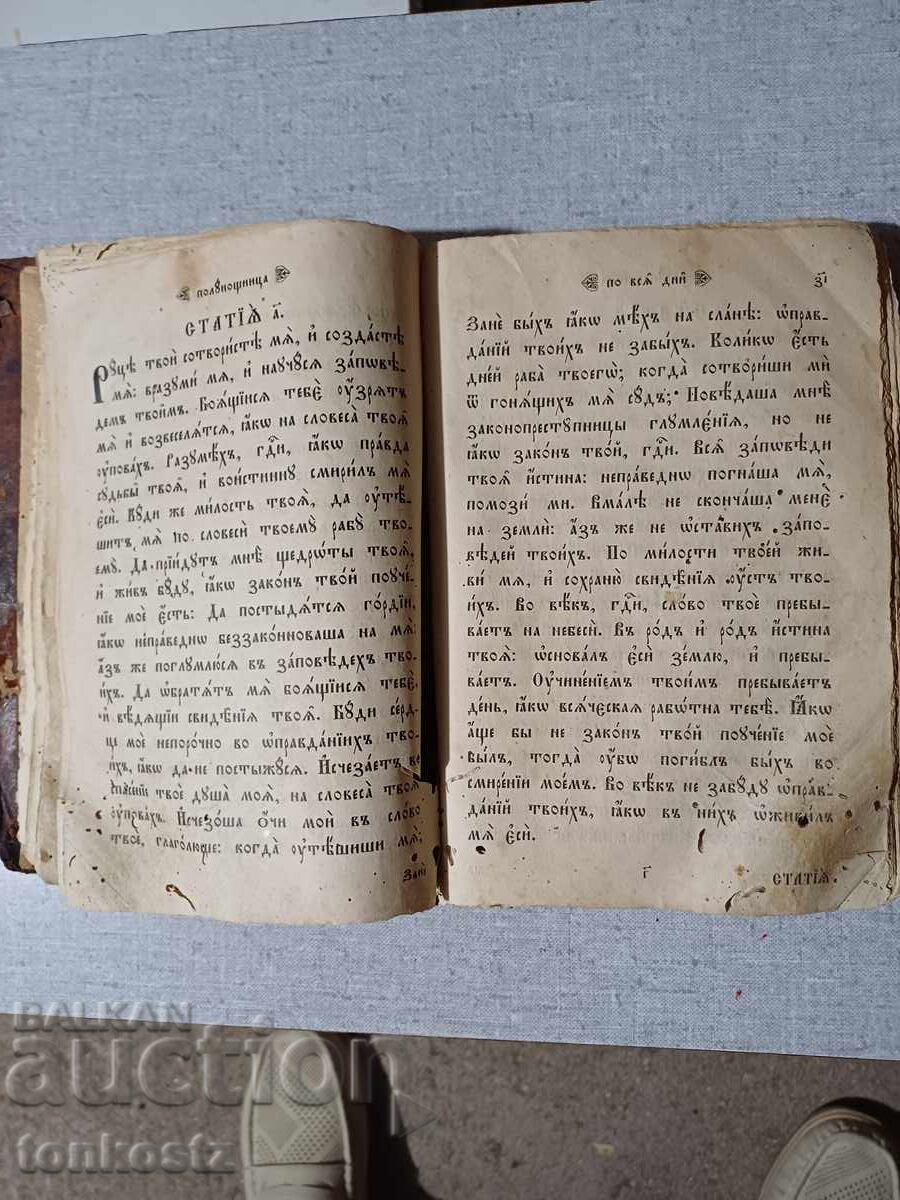 полꙋнощница
СТАТІѦ҆ а҃.
Рꙋ́цѣ твоѝ сотвори́стѣ мѧ̀, и҆ созда́стѣ
мѧ̀: вразꙋмѝ мѧ̀, и҆ наꙋчꙋ́сѧ за́повѣ-
демъ твои̑мъ. Боѧ́щїисѧ тебє̀ ᲂу҆́зрѧтъ
мѧ̀ и҆ возвеселѧ́тсѧ, ꙗ҆́кѡ на словеса̀ твоѧ҄
ᲂу҆пова́хъ. Разꙋмѣ́хъ, гдⷭ҇и, ꙗ҆́кѡ пра́вда
сꙋдьбы҄ твоѧ҄, и҆ вои́стиннꙋ смири́лъ мѧ̀
є҆сѝ. Бꙋ́ди же ми́лость твоѧ̀, да ᲂу҆тѣ́-
шитъ мѧ̀ по словесѝ твоемꙋ̀ рабꙋ̀ тво-
емꙋ̀. Да прїи́дꙋтъ мнѣ̀ щедрѡ́ты твоѧ҄,
и҆ жи́въ бꙋ́дꙋ, ꙗ҆́кѡ зако́нъ тво́й поꙋче́-
нїе моѐ є҆́сть: Да постыдѧ́тсѧ го́рдїи,
ꙗ҆́кѡ непра́веднѡ беззако́нноваша на мѧ̀:
а҆́зъ же поглꙋмлю́сѧ въ за́повѣдехъ тво-
и́хъ. Да ѡ҆братѧ́тъ мѧ̀ боѧ́щїисѧ тебє̀,
и҆ вѣ́дѧщїи свидѣ҄нїѧ твоѧ҄. Бꙋ́ди се́рд-
це моѐ непоро́чно во ѡ҆правда́нїихъ тво-
и́хъ, ꙗ҆́кѡ да не постыжꙋ́сѧ. И҆счеза́етъ во
спⷭ҇е́нїе твоѐ дꙋша̀ моѧ̀, на словеса̀ твоѧ҄
ᲂу҆пова́хъ. И҆счезо́ша ѻ҆́чи моѝ въ сло́во
твоѐ, глаго́люще: когда̀ ᲂу҆тѣ́шиши мѧ̀;
Занѐ
по всѧ҄ днѝ
з҃і
Занѐ бы́хъ ꙗ҆́кѡ мѣ́хъ на сла́нѣ: ѡ҆прав-
да́нїй твои́хъ не забы́хъ. Коли́кѡ є҆́сть
дне́й раба̀ твоегѡ̀; когда̀ сотвори́ши мѝ
ѿ гонѧ́щихъ мѧ̀ сꙋ́дъ; Повѣ́даша мнѣ̀
законопрестꙋ́пницы глꙋмлє́нїѧ, но не
ꙗ҆́кѡ зако́нъ тво́й, гдⷭ҇и. Всѧ҄ за́пѡвѣди
твоѧ҄ и҆́стина: непра́веднѡ погна́ша мѧ̀,
помози́ ми. Вма́лѣ не сконча́ша менє̀
на землѝ: а҆́зъ же не ѡ҆ста́вихъ за́по-
вѣдей твои́хъ. По ми́лости твое́й жи-
ви́ мѧ, и҆ сохраню̀ свидѣ҄нїѧ ᲂу҆́стъ тво-
и́хъ. Во вѣ́къ, гдⷭ҇и, сло́во твоѐ пребы-
ва́етъ на небесѝ. Въ ро́дъ и҆ ро́дъ и҆́стина
твоѧ̀: ѡ҆снова́лъ є҆сѝ зе́млю, и҆ пребы-
ва́етъ. Оу҆чине́нїемъ твои́мъ пребыва́етъ
де́нь, ꙗ҆́кѡ всѧ́чєскаѧ рабѡ́тна тебѣ̀. Ꙗ҆́кѡ
а҆́ще бы не зако́нъ тво́й поꙋче́нїе моѐ
бы́лъ, тогда̀ ᲂу҆́бѡ поги́блъ бы́хъ во
смире́нїи мое́мъ. Во вѣ́къ не забꙋ́дꙋ ѡ҆прав-
да́нїй твои́хъ, ꙗ҆́кѡ въ ни́хъ ѡ҆живи́лъ
мѧ̀ є҆сѝ.
г҃
СТАТІѦ҆.
BALKAN
auction
tonkostz